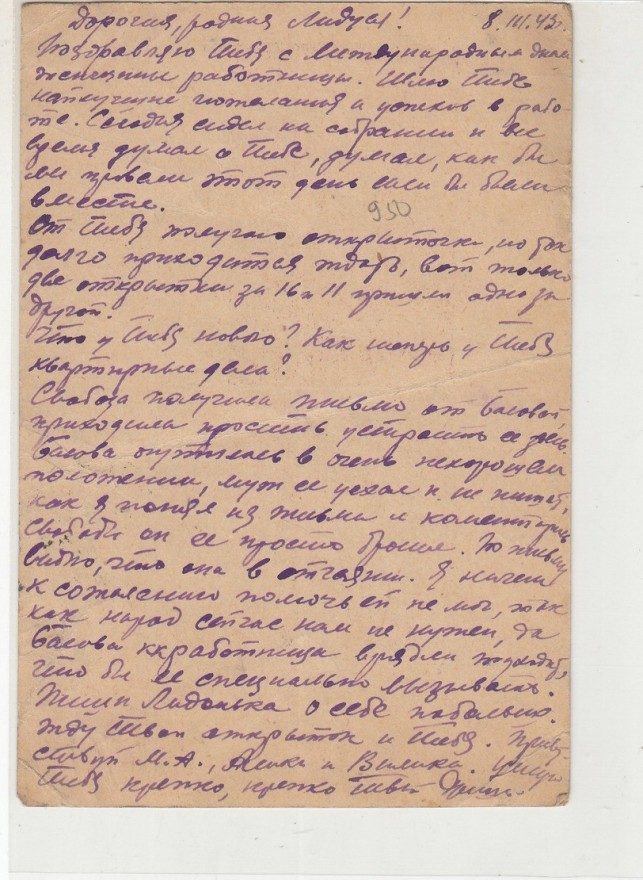 Дорогая, родная Лидуся! 8.III.43г.
Поздравляю Тебя с Международным днем
женщины работницы. Шлю Тебе
наилучшие пожелания и успехов в рабо-
те. Сегодня сидел на собрании и все
время думал о Тебе, думал, как бы
мы провели этот день если бы были
вместе.
950
От Тебя получаю открыточки, но так
долго приходится ждать, вот только
две открытки за 16 и 11 пришли одна за
другой.
Что у Тебя нового? Как теперь у Тебя
квартирные дела?
Свобода получила письмо от Басовой,
приходила просить устроить ее здесь.
Басова очутилась в очень нехорошем
положении, муж ее уехал и не пишет,
как я понял из письма и
Свободы он ее просто бросил. По письму
видно, что она в отчаянии. Я ничем
к сожалению помочь ей не мог, так
как народ сейчас нам не нужен, да
Басова как работница врядли подходит,
что бы ее специально вызывать.
Пиши Лидонька о себе побольше.
Жду Твоих открыток и Тебя. Привет-
ствуй М.А., и Вилика. Целую
Тебя крепко, крепко Твой